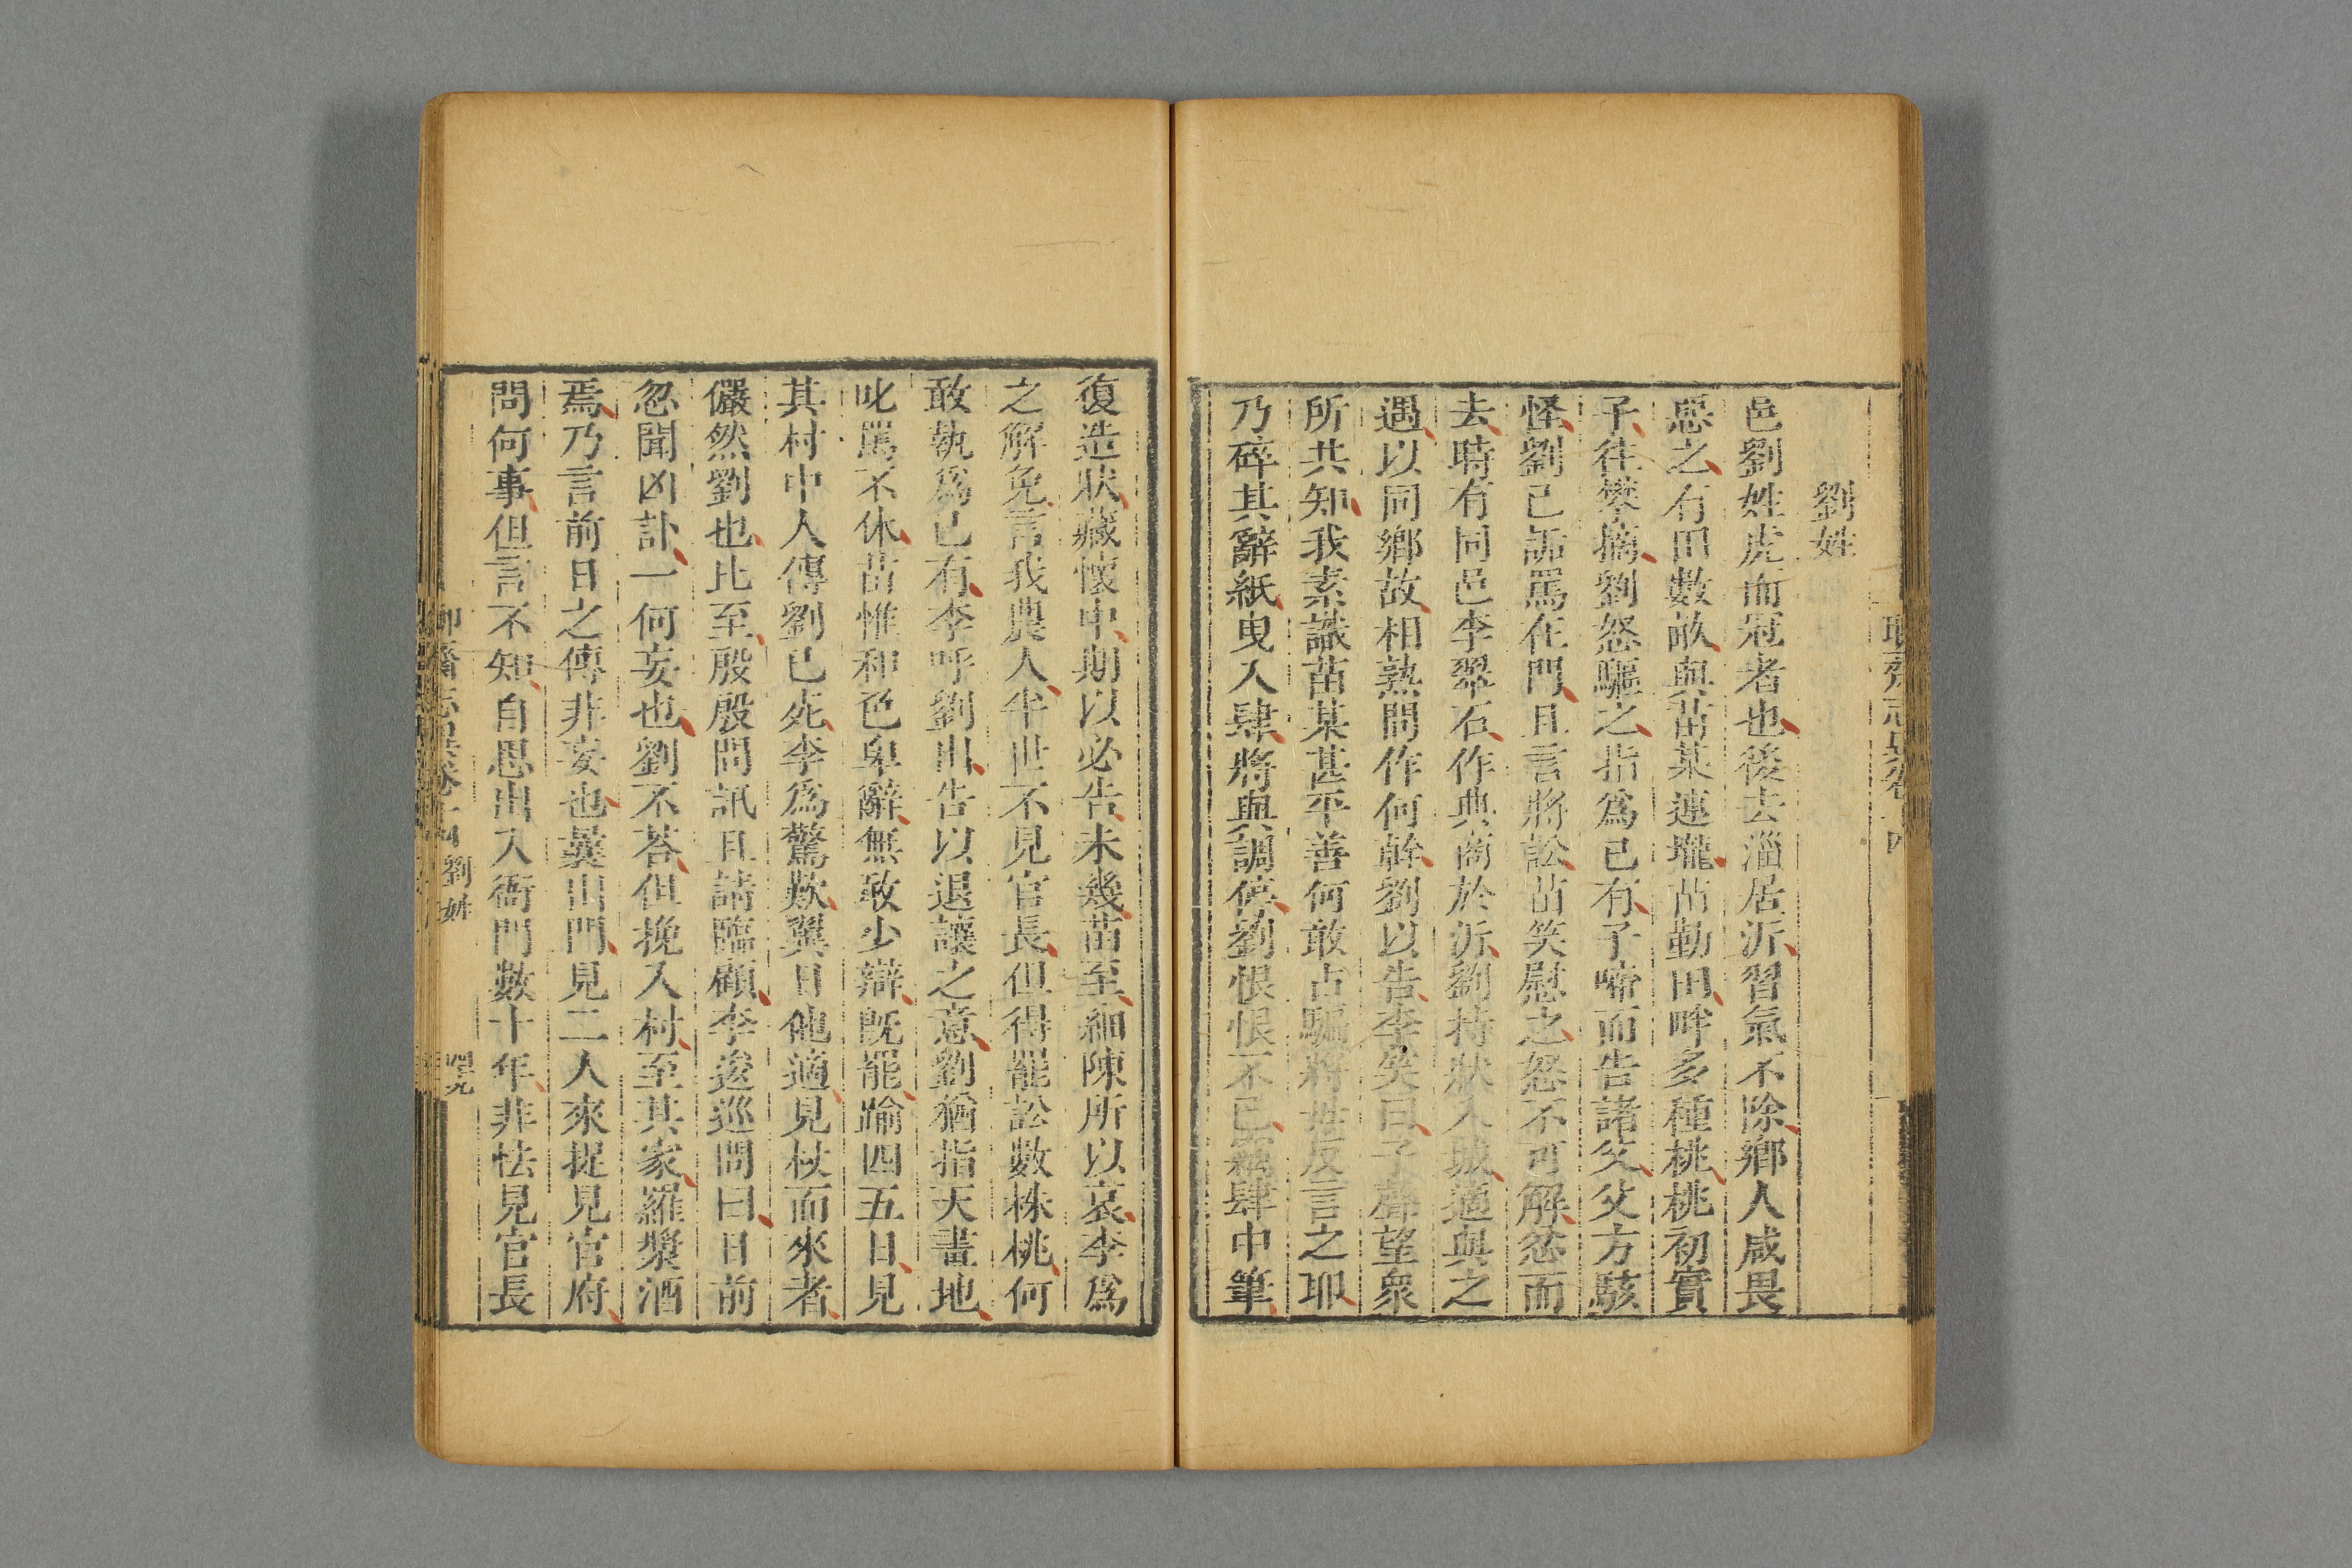 劉姓
邑劉姓虎而冠者也後去淄居沂習氣不除鄉人咸畏
惡之有田數畝與苗某連壠苗勤田畔多種桃桃初實
子往攀摘劉怒驅之指為己有子啼而告諸父父方駭
怪劉已詬罵在門且言將訟苗笑慰之怒不可解忿而
去時有同邑李翠石作典商於沂劉持狀入城適與之
遇以同鄉故相熟問作何幹劉以告李笑曰子聲望衆
所共知我素識苗某甚平善何敢占騙將毋反言之耶
乃碎其辭紙曳入肆將與調停劉恨恨不已竊肆中筆
復造狀藏懷中期以必告未幾苗至細陳所以哀李為
之解免言我農人半世不見官長但得罷訟數株桃何
敢執為己有李呼劉出告以退讓之意劉猶指天畫地
叱罵不休苗惟和色卑辭無敢少辯既罷踰四五日見
其村中人傳劉已死李為驚歎異日他適見杖而來者
儼然劉也比至殷殷問訊且請臨顧李逡巡問曰日前
忽聞凶訃一何妄也劉不荅但挽入村至其家羅漿酒
焉乃言前日之傳非妄也曩出門見二人來捉見官府
問何事但言不知自思出入衙門數十年非怯見官長
聊齋志異卷十四 劉姓